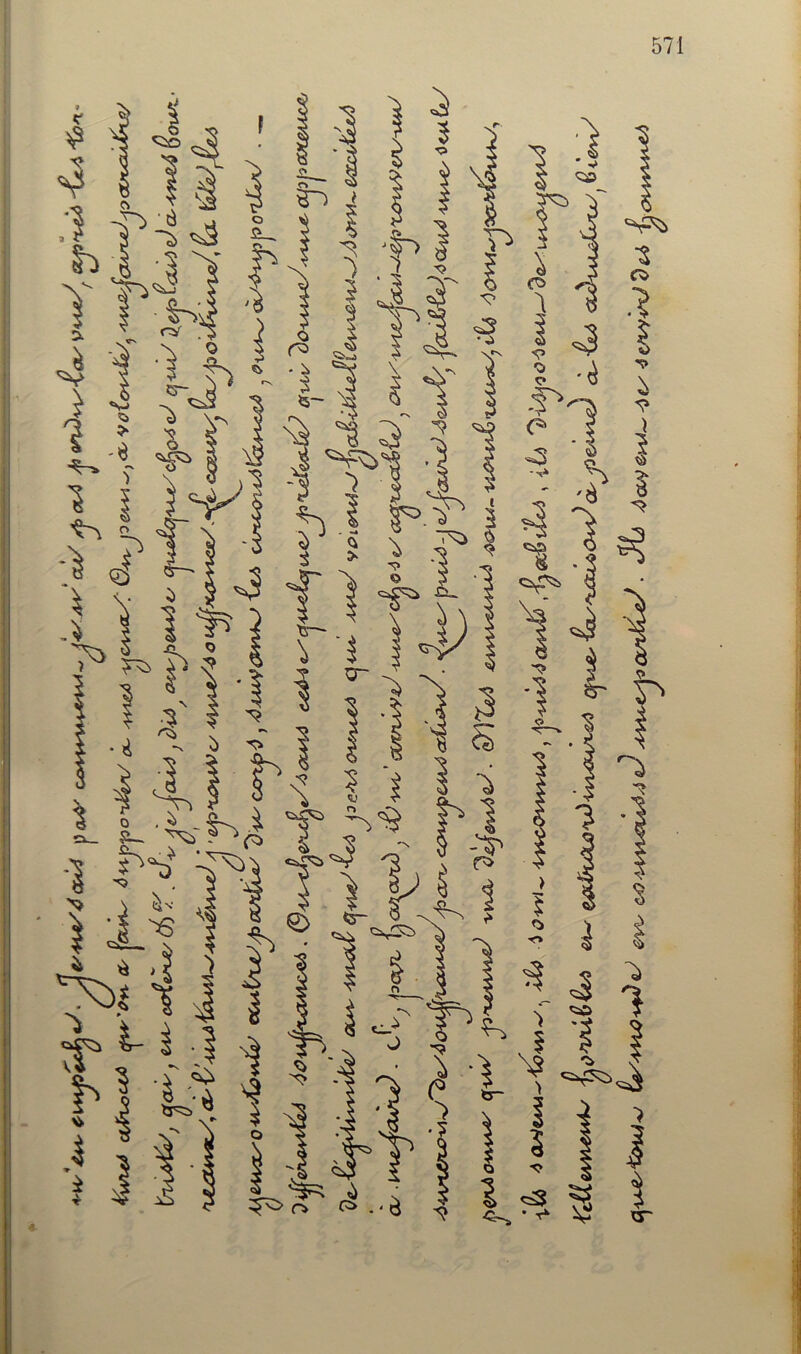 571
m'en empêche. Je ne sais pas comment je n'ai pas perdu la vue, après les tor-
tures atroces qu'on a fait supporter à mes yeux. On peut, à volonté, me faire paraître
triste, gai, en colère &c. Si je fais, dis, ou pense quelque chose qui déplaise à mes bour-
reaux, à l'instant même j'éprouve une souffrance. Le cœur, la poitrine, la tête, les
yeux ou toute autre partie du corps, suivant les circonstances, ont à supporter. —
différentes souffrances. On cherche sans cesse quelque prétexte qui donne une apparence
de légitimité au mal que les personnes qui me voient habituellement sont excitées
à me faire. Si, par hasard, il m'arrive une chose agréable, on me fait éprouver un
surcroît de souffrance par compensation. Que puis-je faire seul, faible, sans une seule
personne qui prenne ma défense. Mes ennemis sont nombreux, ils sont partout,
ils savent tout, ils sont inconnus, puissants, habiles, ils disposent de moyens
tellement horribles et extraordinaires que la raison à peine à les admettre, bien
que tout le monde en connaisse une partie. Ils savent se servir des hommes